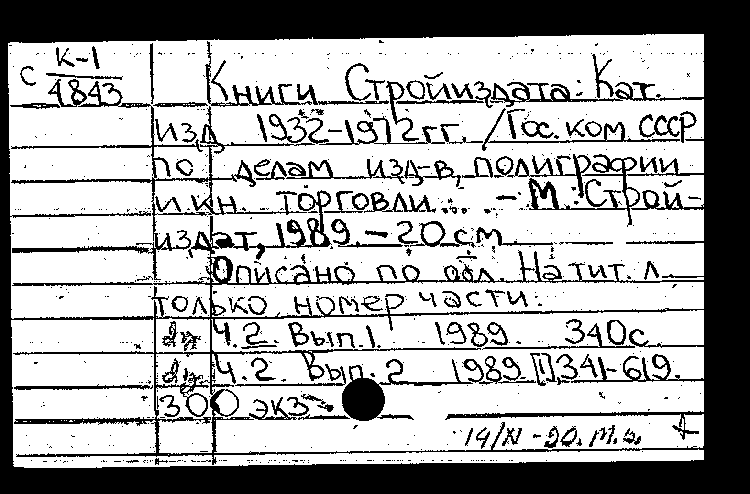 с К-1
4843
Книги Стройиздата: Кат.
изд 1932-1972 гг. /Гос. ком. СССР
по делам изд-в, полиграфии
и кн. торговли... - М.: Строй-
издат, 1989. - 20 см
Описано по обл. На тит. л.
только номер части.
Ч.2. Вып.1. 1989. 340с
Ч.2. Вып. 2 1989 [1],341-619.
300 экз